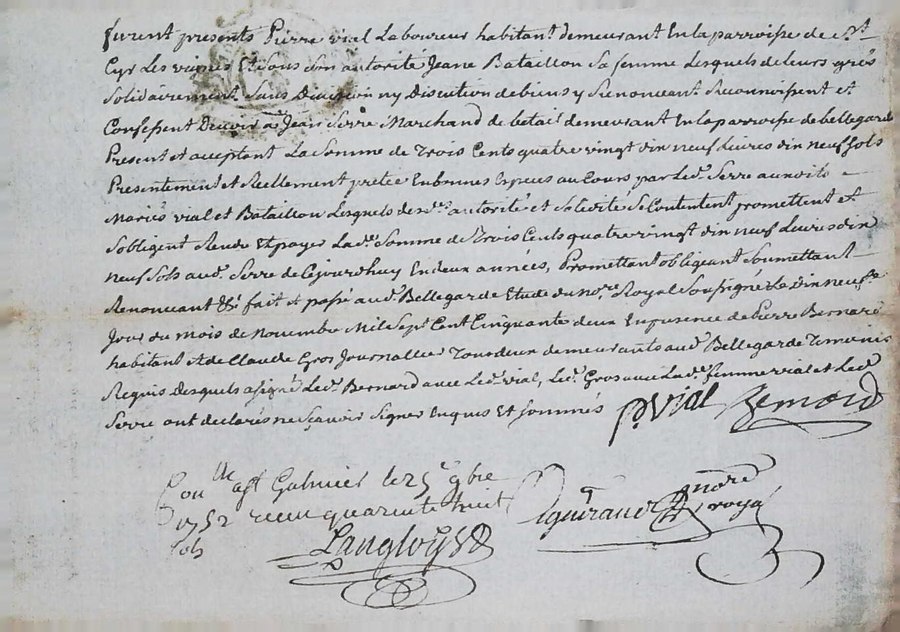 furent presents Pierre vial Laboureur habitant demeurant En la parroisse de St
Cyr Les vignes Et sous son autorité Jeane Bataillon Sa femme Lesquels de leurs grés
Solidairement Sans Division ny Discution de biens y Renonceant Reconnoissent et
Confessent Devoir a Jean Serre Marchand de betail demeurant En la parroisse de bellegarde
Present et acceptant La Somme de Trois Cents quatre vingt dix neuf Livres dix neuf sols
Presentement et Reellement pretée En bonnes Especes au Cours par Led. Serre auxdits
Mariés vial et Bataillon Lesquels de sde. autorité et Solidité Se Contentent promettent et
Sobligent Rendre Et payer Lade. Somme de Trois Cents quatre vingt dix neuf Livres dix
neuf Sols aud. Serre de Cejourdhuy En deux années, Promettant obligeant Soumettant
Renonceant &c fait et passé aud. Bellegarde Etude du nore. Royal Soussigné Le Dix neufe.
Jour du mois de Novembre Mil Sept Cent Cinquante deux En presence de Pierre Bernard
habitant et de Claude Gros Journallier Tous deux demeurants aud. Bellegarde Temoins
Requis Desquels a signé Led. Bernard avec Led. vial, Led. Gros avec Lade. femme vial et Led.
Serre ont declarés ne Sçavoir Signer Enquis Et Sommés P. Vial Bernard
Con lle a St Galmier le 25e 9bre
1752 receu quarente huit
sols
Langloys
nore royal